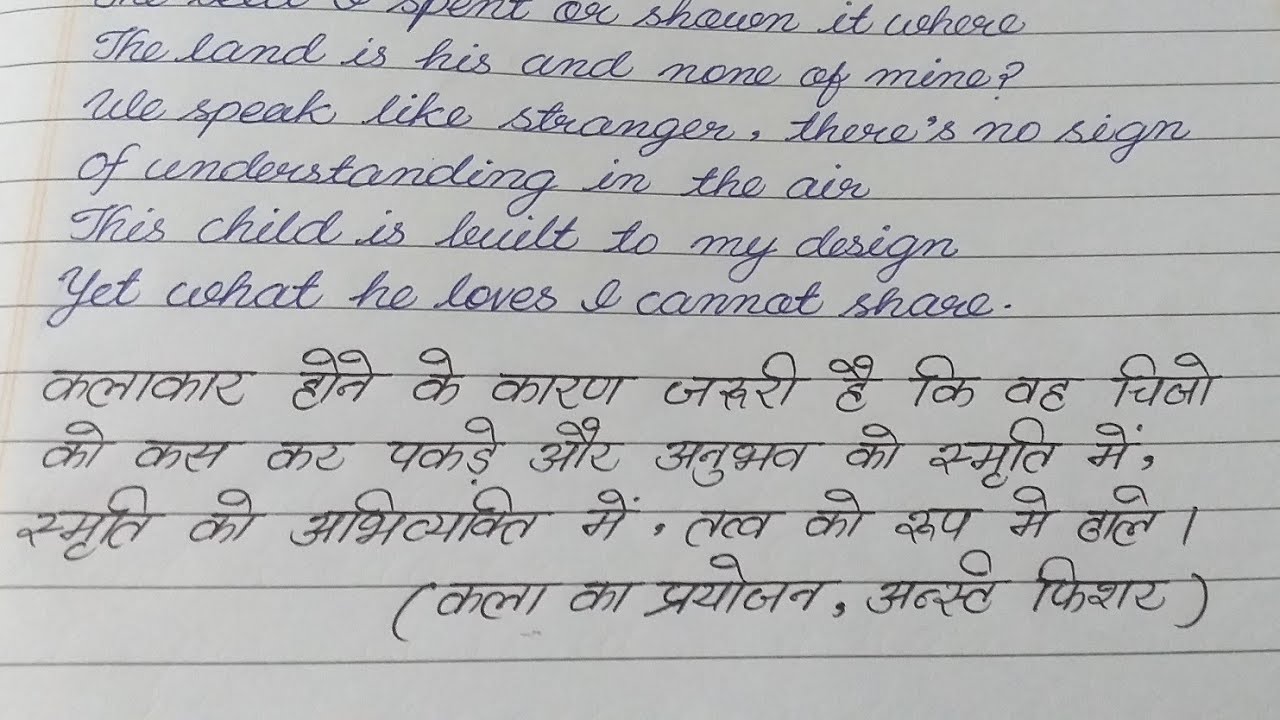 spent or shown it where
The land is his and none of mine?
We speak like stranger, there's no sign
Of understanding in the air
This child is built to my design
Yet what he loves I cannot share.
कलाकार होने के कारण जरूरी है कि वह चिजो
को कस कर पकड़े और अनुभव को स्मृति में,
स्मृति को अभिव्यक्ति में, तत्व को रूप मे ढाले ।
(कला का प्रयोजन, अर्न्स्ट फिशर)